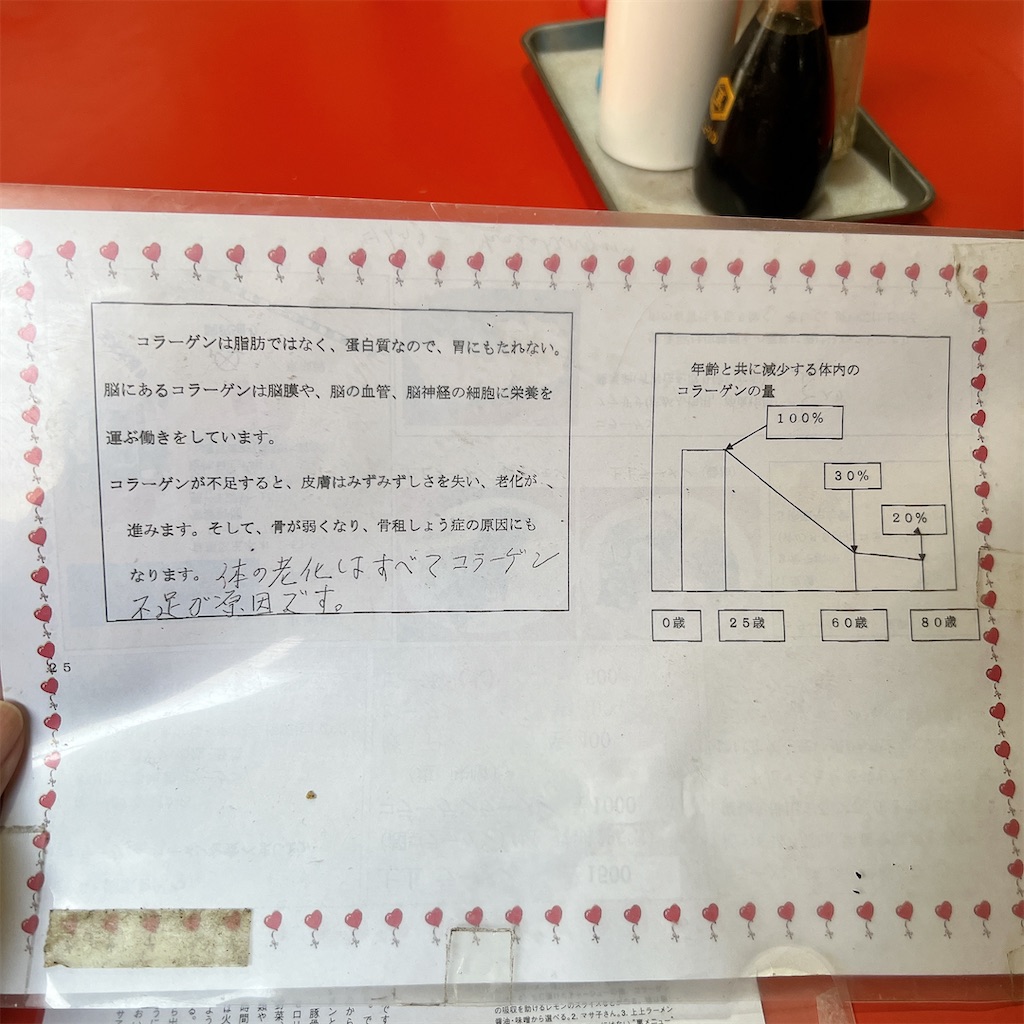 コラーゲンは脂肪ではなく、蛋白質なので、胃にもたれない。
脳にあるコラーゲンは脳膜や、脳の血管、脳神経の細胞に栄養を
運ぶ働きをしています。
コラーゲンが不足すると、皮膚はみずみずしさを失い、老化が、
進みます。そして、骨が弱くなり、骨租しょう症の原因にも
なります。体の老化はすべてコラーゲン
不足が原因です。
年齢と共に減少する体内の
コラーゲンの量
100%
30%
20%
0歳
25歳
60歳
80歳
25
の吸収を助けるレモンのスライスなど
醤油・味噌から選べる。2. マサ子さん。3. 上上ラーメン